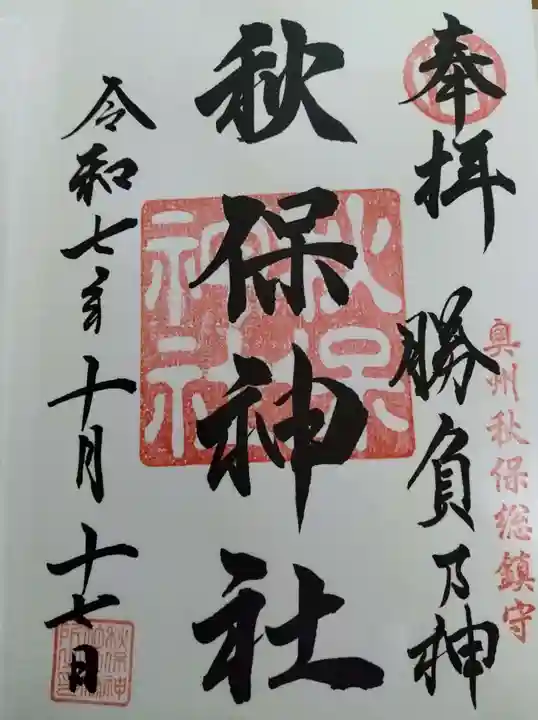 奉拝
勝負乃神
奥州秋保総鎮守
秋保神社
秋保
神社
令和七年十月十七日